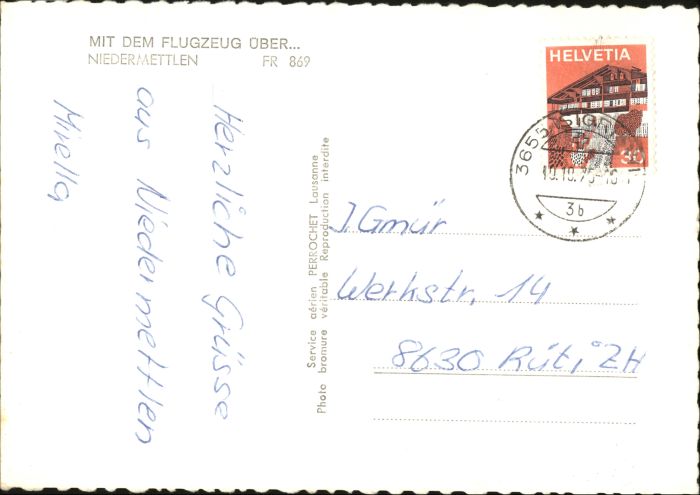 MIT DEM FLUGZEUG ÜBER...
NIEDERMETTLEN FR 869
Herzliche Grüsse
aus Niedermettlen
Mirella
Service aérien PERROCHET Lausanne
Photo bromure véritable Reproduction interdite
HELVETIA
30
3655
19.10.
3b
J. Gmür
Werkstr. 14
8630 Rüti ZH